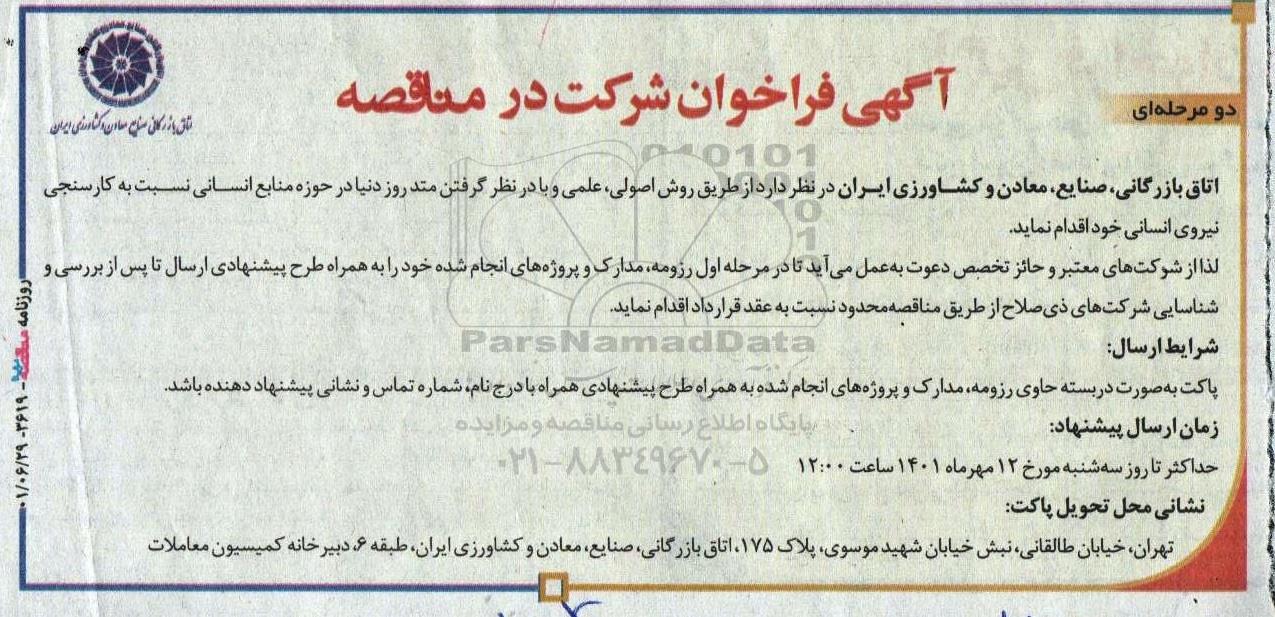 اتاق بازرگانی صنایع معادن و کشاورزی ایران
آگهی فراخوان شرکت در مناقصه
دو مرحله‌ای
اتاق بازرگانی، صنایع، معادن و کشاورزی ایران در نظر دارد از طریق روش اصولی، علمی و با در نظر گرفتن متد روز دنیا در حوزه منابع انسانی نسبت به کارسنجی
نیروی انسانی خود اقدام نماید.
لذا از شرکت‌های معتبر و حائز تخصص دعوت به‌عمل می‌آید تا در مرحله اول رزومه، مدارک و پروژه‌های انجام شده خود را به همراه طرح پیشنهادی ارسال تا پس از بررسی و
شناسایی شرکت‌های ذی‌صلاح از طریق مناقصه‌محدود نسبت به عقد قرارداد اقدام نماید.
شرایط ارسال:
پاکت به‌صورت دربسته حاوی رزومه، مدارک و پروژه‌های انجام شده به همراه طرح پیشنهادی همراه با درج نام، شماره تماس و نشانی پیشنهاد دهنده باشد.
زمان ارسال پیشنهاد:
حداکثر تا روز سه‌شنبه مورخ ۱۲ مهرماه ۱۴۰۱ ساعت ۱۲:۰۰
نشانی محل تحویل پاکت:
تهران، خیابان طالقانی، نبش خیابان شهید موسوی، پلاک ۱۷۵، اتاق بازرگانی، صنایع، معادن و کشاورزی ایران، طبقه ۶، دبیرخانه کمیسیون معاملات
روزنامه مناقصه - ۳۶۱۹ - ۰۱/۰۶/۲۹
ParsNamadData
پایگاه اطلاع رسانی مناقصه و مزایده
۰۲۱-۸۸۳۴۹۶۷۰-۵